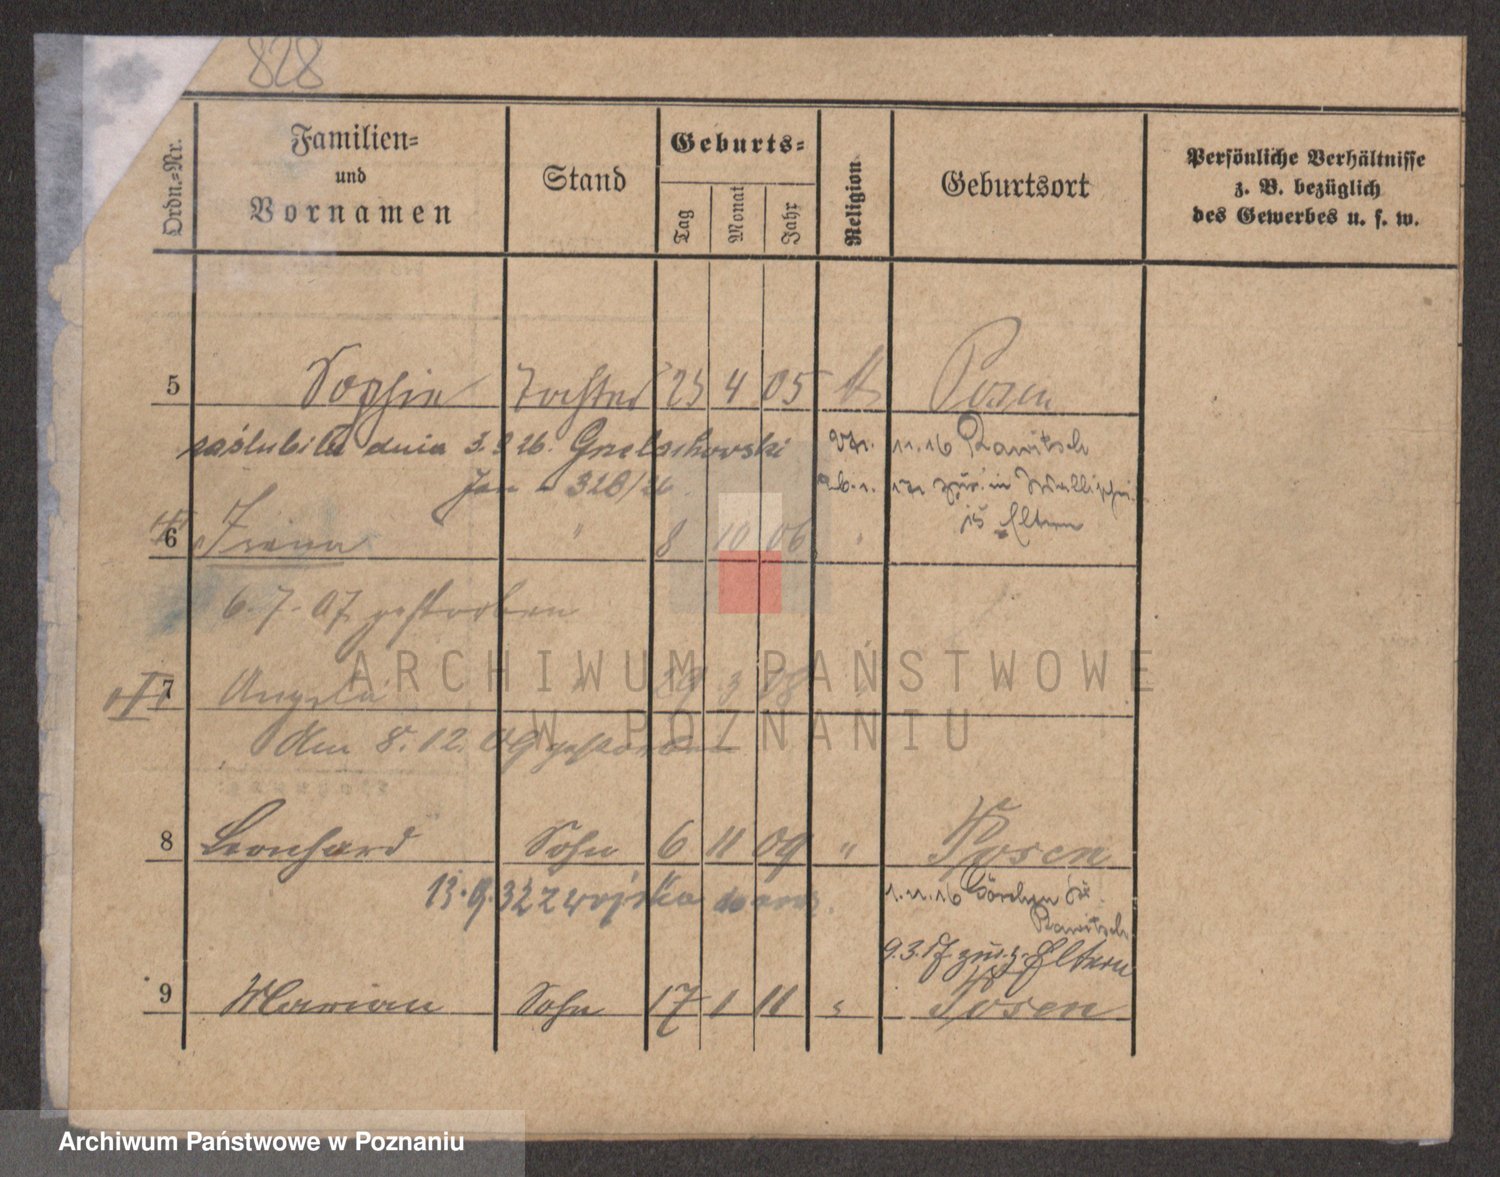 828
Ordn.-Nr.
Familien-
und
Vornamen
Stand
Geburts-
Tag
Monat
Jahr
Religion
Geburtsort
Persönliche Verhältnisse
z. B. bezüglich
des Gewerbes u. s. w.
5 Sophie Tochter 23 4 05 k Posen
zaślubiła dnia 3.9 26. Grelachowski
11.16 Rawitsch
Jan 328/26
in Wallischei
Eltern
6 Irena " 8 10 06 "
6. 7. 07 gestorben
7 Angela " 29 3 08 "
ARCHIWUM PAŃSTWOWE
W POZNANIU
den 8. 12. 09 gestorben
8 Leonhard Sohn 6 11 09 " Posen
13.9.32 z wojska
1.11.16
Rawitsch
9.3.17 zur. z. Eltern
9 Marian Sohn 17 1 11 " Posen
Archiwum Państwowe w Poznaniu